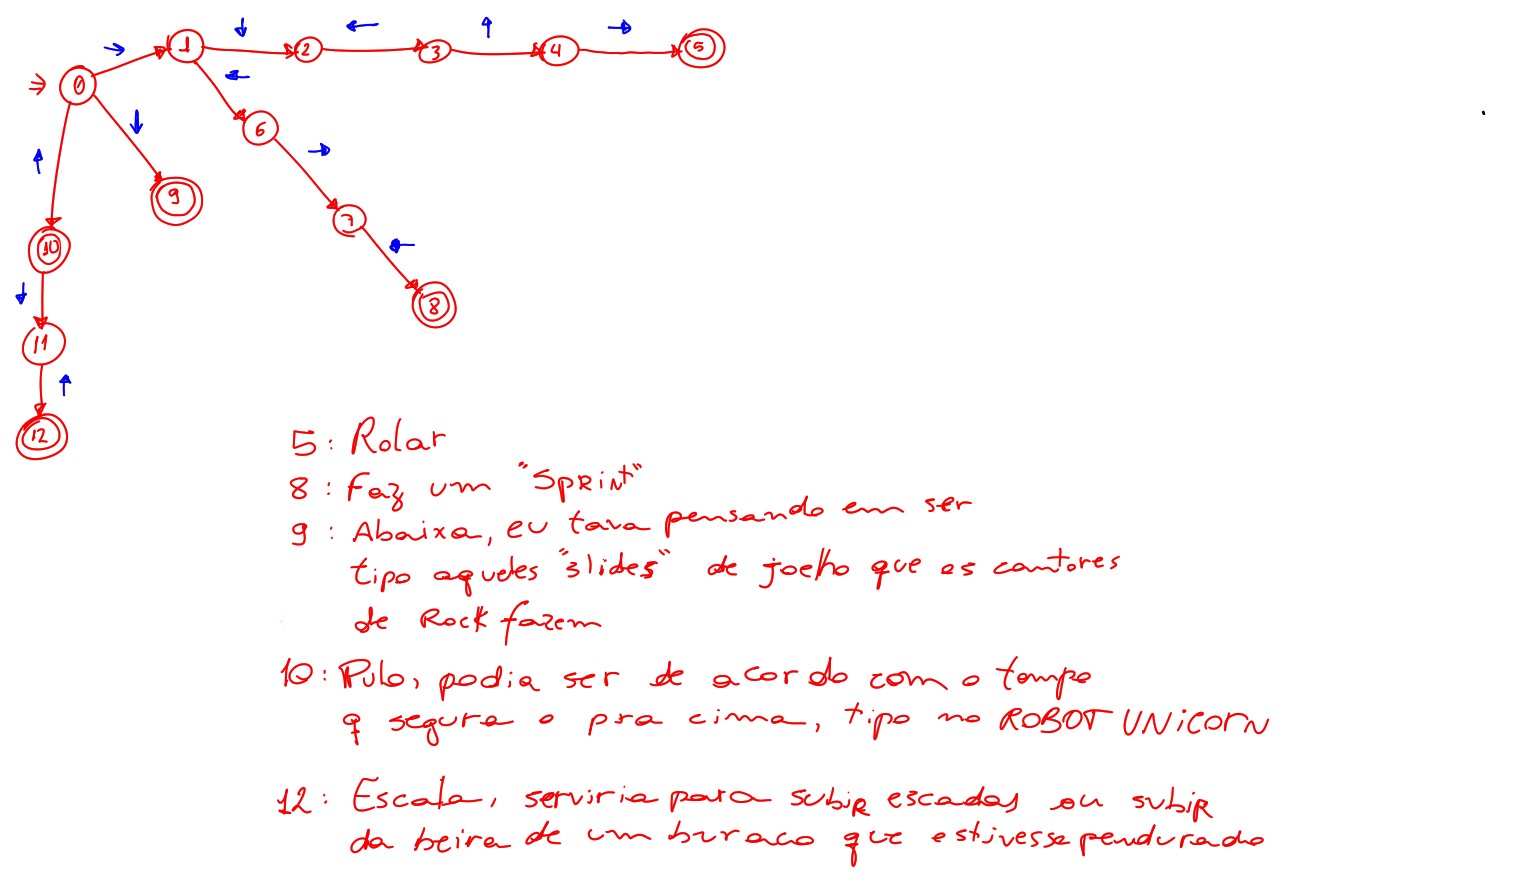 1
2
3
4
5
0
6
7
9
10
8
11
12
5: Rolar
8: Faz um "Sprint"
9: Abaixa, eu tava pensando em ser
tipo aqueles "slides" de joelho que os cantores
de Rock fazem
10: Pulo, podia ser de acordo com o tempo
q segura o pra cima, tipo no ROBOT UNICORN
12: Escala, serviria para subir escadas ou subir
da beira de um buraco que estivesse pendurado